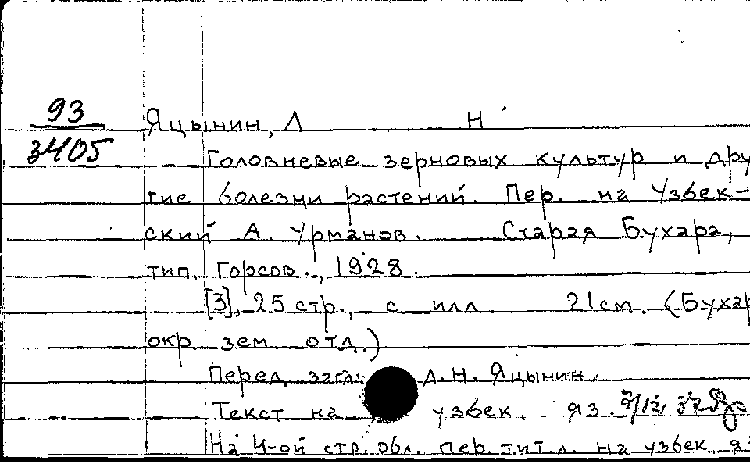 93
3405
Яцынин, Л Н
Головневые зерновых культур и дру
гие болезни растений. Пер. на Узбек-
ский А. Урманов. Старая Бухара,
тип. Горсов., 1928.
[3], 25 стр., с илл. 21см. (Бухар
окр. зем. отд.)
Перед загл: Л.Н. Яцынин.
Текст на узбек. яз.
На 4-ой стр. обл. пер. тит. л. на узбек. яз